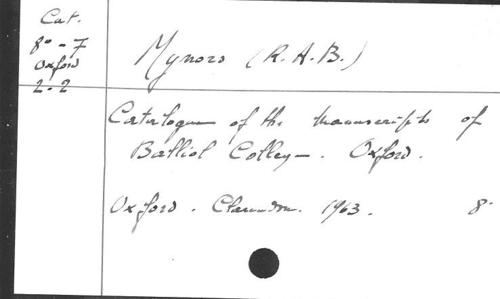 Cat.
8° - 7
Oxford
2-2
Mynors (R.A.B.)
Catalogue of the manuscripts of
Balliol College. Oxford.
Oxford. Clarendon. 1963. 8°